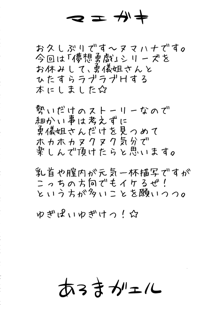 マエガキ
お久しぶりです〜ヌマハナです。
今回は「優想勇戯」シリーズを
お休みして、勇儀姐さんと
ひたすらラブラブHする
本にしました☆
勢いだけのストーリーなので
細かい事は考えずに
勇儀姐さんだけを見つめて
ホカホカヌクヌク気分で
楽しんで頂けたらと思います。
乳首や膣内が元気一杯描写ですが
こっちの方向でもイケるぜ!
という方が多いことを願いつつ。
ゆぎぱいゆぎけつ!☆
あろまがエル